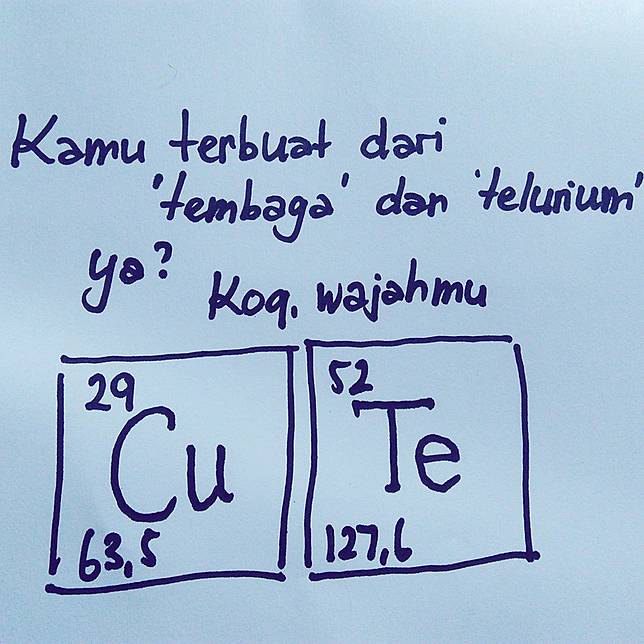 Kamu terbuat dari
'tembaga' dan 'telurium'
ya?
Koq, wajahmu
29 52
Cu Te
63,5 127,6